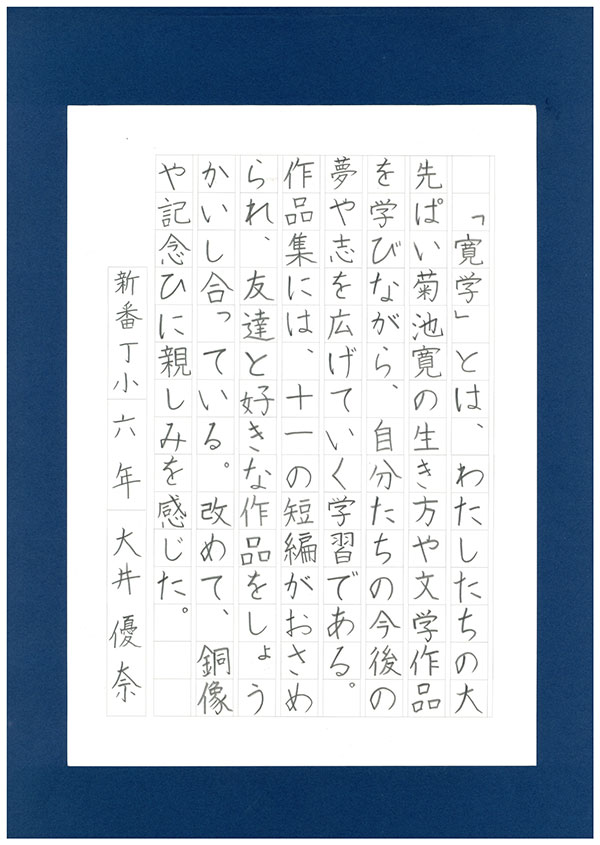 「寛学」とは、わたしたちの大
先ぱい菊池寛の生き方や文学作品
を学びながら、自分たちの今後の
夢や志を広げていく学習である。
作品集には、十一の短編がおさめ
られ、友達と好きな作品をしょう
かいし合っている。改めて、銅像
や記念ひに親しみを感じた。
新番丁小六年大井優奈